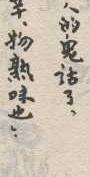 的鬼話了、
物熟味也